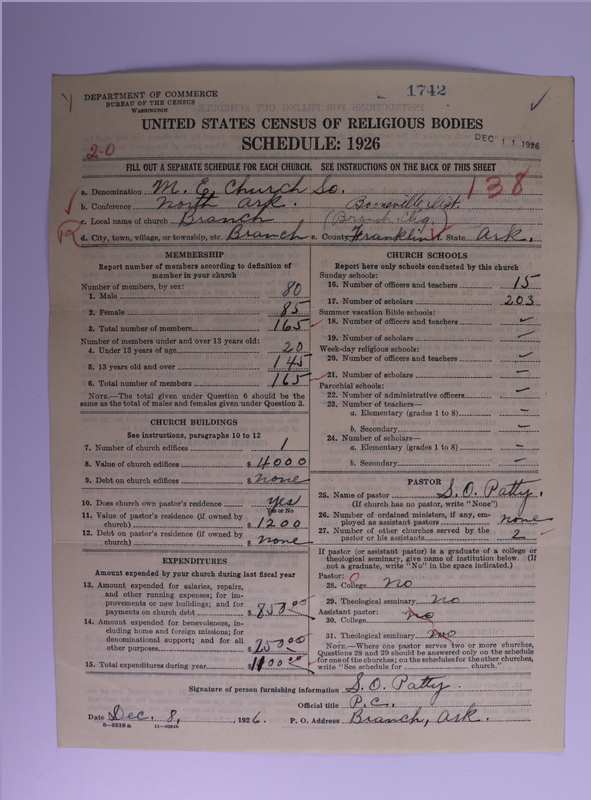 1742
DEPARTMENT OF COMMERCE
BUREAU OF THE CENSUS
WASHINGTON
UNITED STATES CENSUS OF RELIGIOUS BODIES
SCHEDULE: 1926
DEC 11 1926
2-0
FILL OUT A SEPARATE SCHEDULE FOR EACH CHURCH. SEE INSTRUCTIONS ON THE BACK OF THIS SHEET
138
a. Denomination M. E. Church So.
b. Conference North Ark. Booneville Dist.
c. Local name of church Branch (Branch Chg.)
d. City, town, village, or township, etc. Branch e. County Franklin f. State Ark.
R
MEMBERSHIP
Report number of members according to definition of
member in your church
Number of members, by sex:
1. Male 80
2. Female 85
3. Total number of members 165
Number of members under and over 13 years old:
4. Under 13 years of age 20
5. 13 years old and over 145
6. Total number of members 165
NOTE.—The total given under Question 6 should be
same as the total of males and females given under Question 3.
CHURCH BUILDINGS
See instructions, paragraphs 10 to 12
7. Number of church edifices 1
8. Value of church edifices $ 4000
9. Debt on church edifices $ none
10. Does church own pastor's residence yes
Yes or No
11. Value of pastor's residence (if owned by
church) $ 1200
12. Debt on pastor's residence (if owned by
church) $ none
EXPENDITURES
Amount expended by your church during last fiscal year
13. Amount expended for salaries, repairs,
and other running expenses; for im-
provements or new buildings; and for
payments on church debt $ 850.00
14. Amount expended for benevolences, in-
cluding home and foreign missions; for
denominational support; and for all
other purposes $ 250.00
15. Total expenditures during year $ 1100.00
CHURCH SCHOOLS
Report here only schools conducted by this church
Sunday schools:
16. Number of officers and teachers 15
17. Number of scholars 203
Summer vacation Bible schools:
18. Number of officers and teachers
19. Number of scholars
Week-day religious schools:
20. Number of officers and teachers
21. Number of scholars
Parochial schools:
22. Number of administrative officers
23. Number of teachers—
a. Elementary (grades 1 to 8)
b. Secondary
24. Number of scholars—
a. Elementary (grades 1 to 8)
b. Secondary
PASTOR
25. Name of pastor S. O. Patty.
(If church has no pastor, write "None")
26. Number of ordained ministers, if any, em-
ployed as assistant pastors none
27. Number of other churches served by the
pastor or his assistants 2
If pastor (or assistant pastor) is a graduate of a college or
theological seminary, give name of institution below. (If
not a graduate, write "No" in the space indicated.)
Pastor: 0
28. College no
29. Theological seminary no
Assistant pastor:
30. College no
31. Theological seminary no
NOTE.—Where one pastor serves two or more churches,
Questions 28 and 29 should be answered only on the schedule
for one of the churches; on the schedules for the other churches,
write "See schedule for church."
Signature of person furnishing information S. O. Patty.
Official title P. C.
Date Dec. 8, 1926. P. O. Address Branch, Ark.